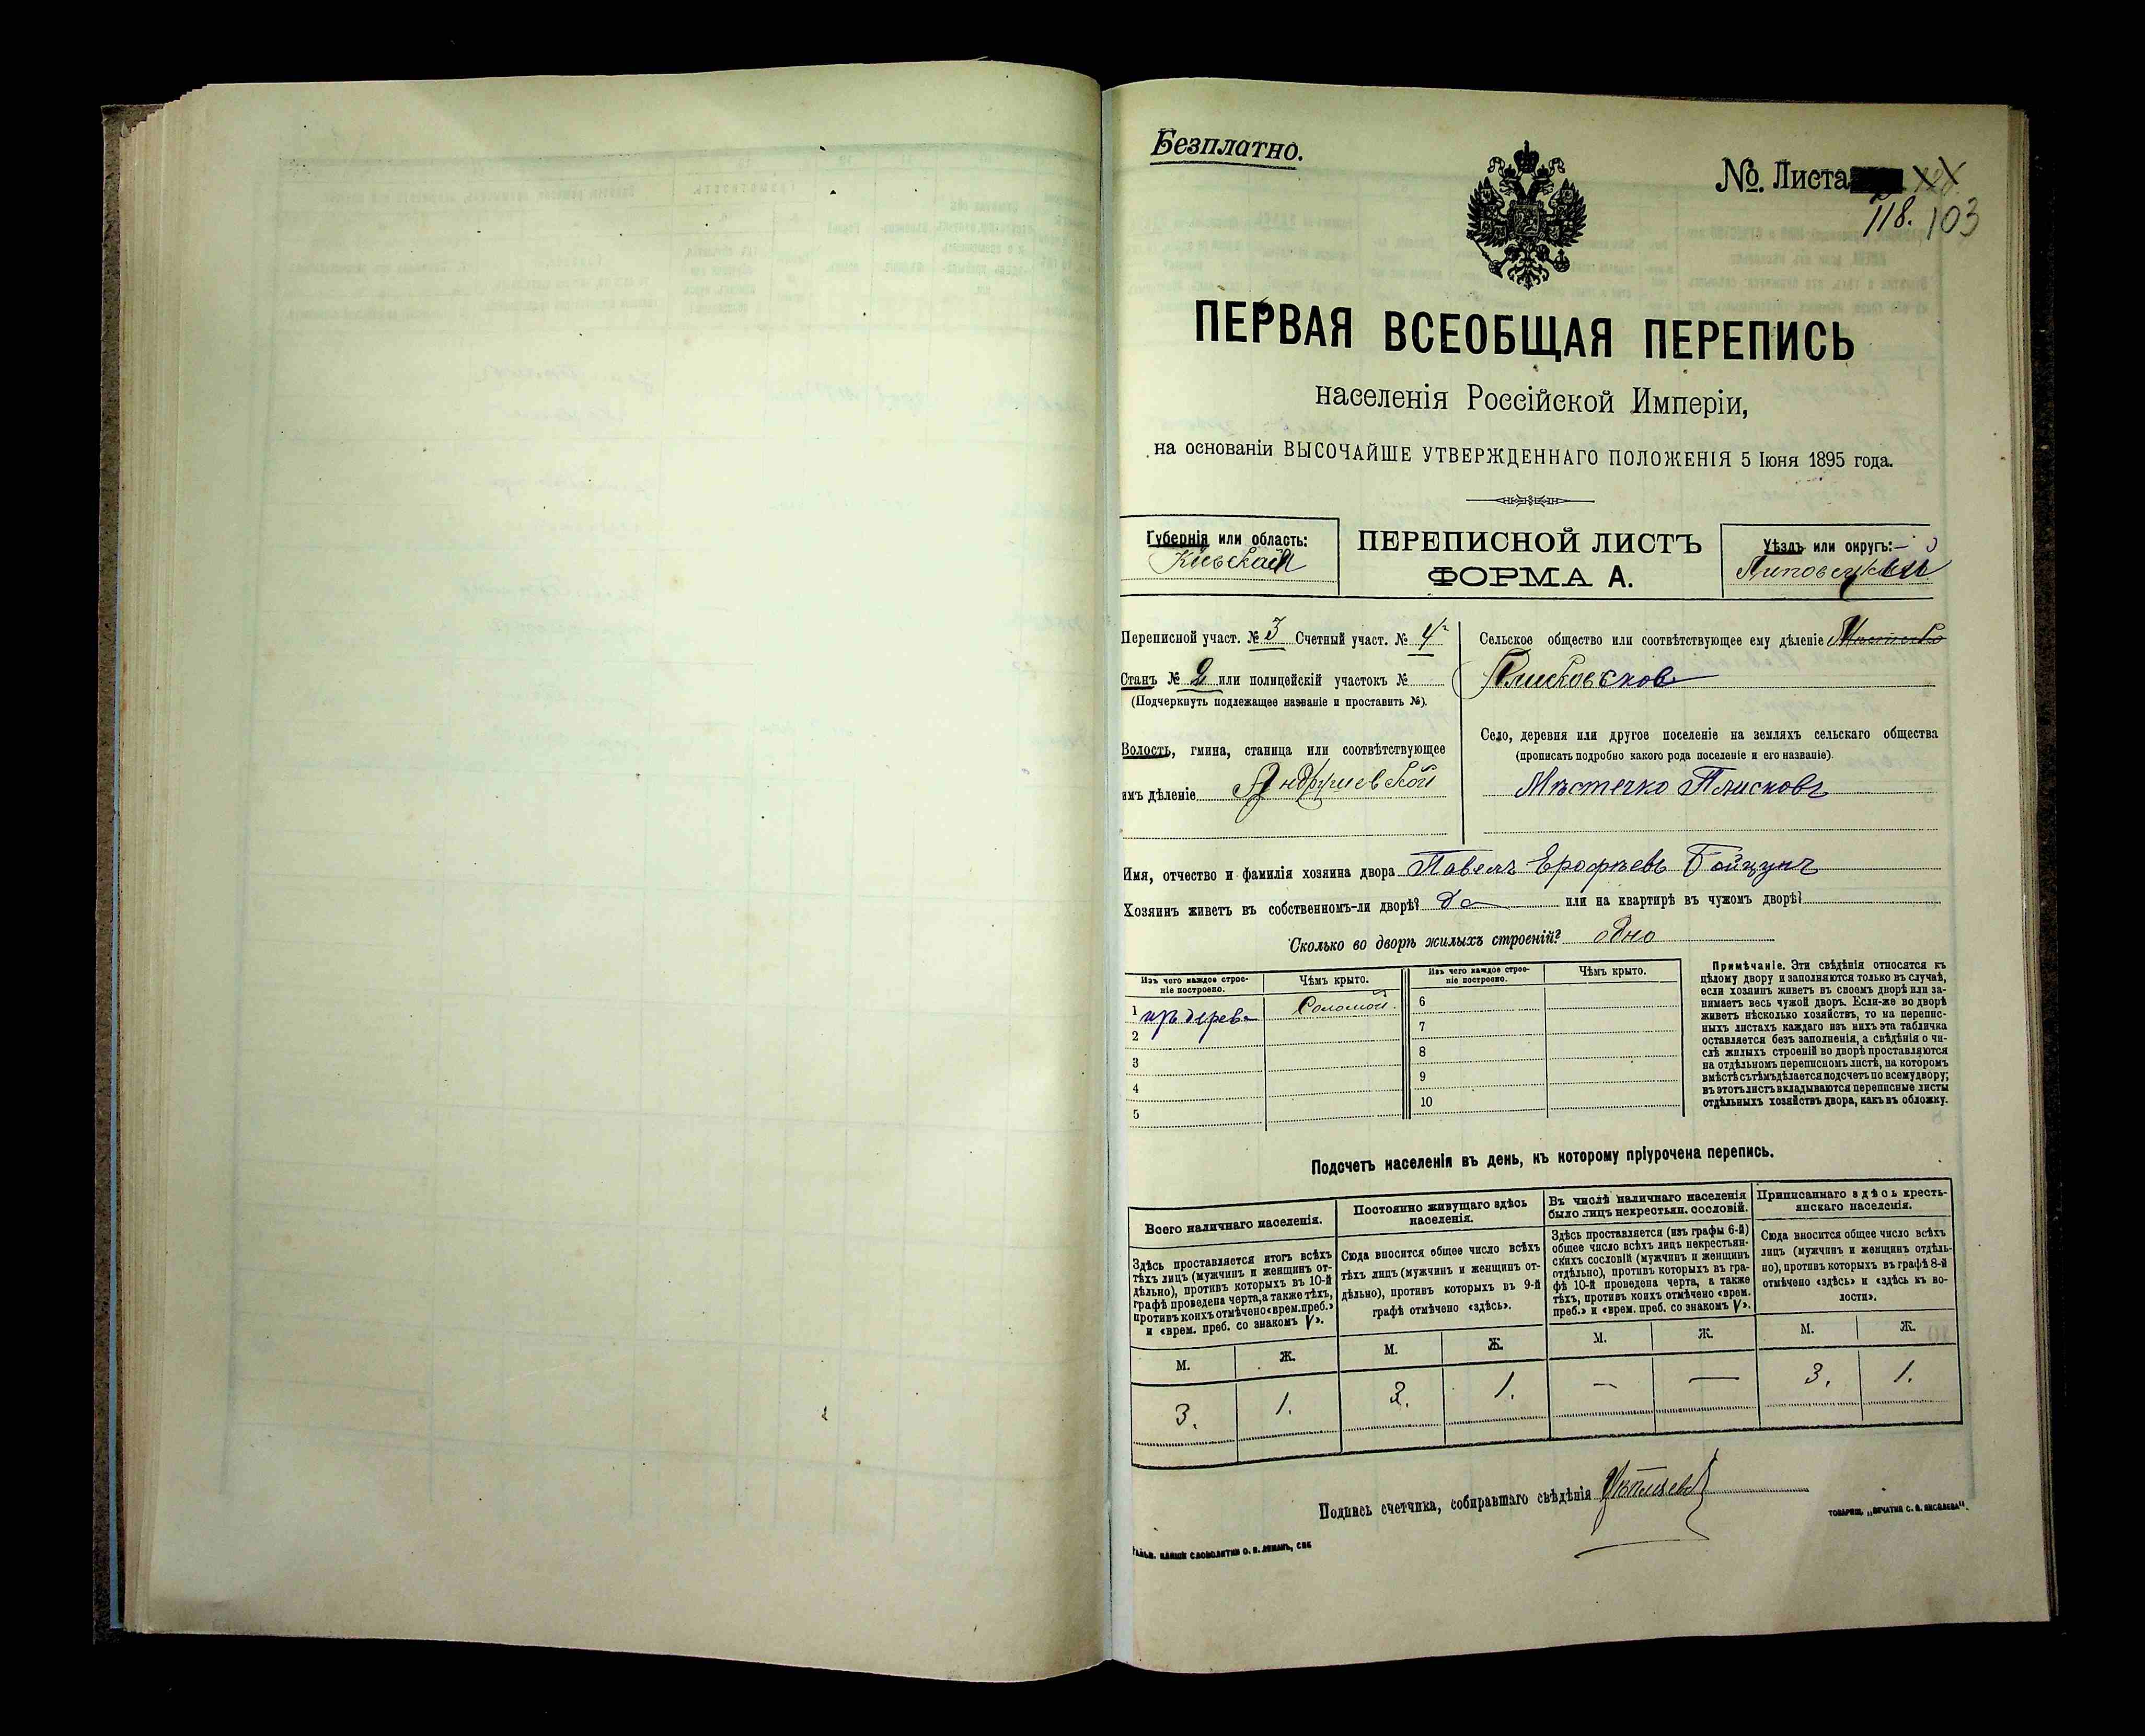 Безплатно.
№. Листа
118. 103
ПЕРВАЯ ВСЕОБЩАЯ ПЕРЕПИСЬ
населенія Россійской Имперіи,
на основаніи ВЫСОЧАЙШЕ УТВЕРЖДЕННАГО ПОЛОЖЕНІЯ 5 Іюня 1895 года.
Губернія или область:
Кіевская
ПЕРЕПИСНОЙ ЛИСТЪ
ФОРМА А.
Уѣздъ или округъ:
Липовецкій
Переписной участ. № 3 Счетный участ. № 4
Станъ № 2 или полицейскій участокъ №
(Подчеркнуть подлежащее названіе и проставить №).
Волость, гмина, станица или соотвѣтствующее
имъ дѣленіе Андрушевской
Сельское общество или соотвѣтствующее ему дѣленіе Мѣстечко
Плисковъ
Село, деревня или другое поселеніе на земляхъ сельскаго общества
(прописать подробно какого рода поселеніе и его названіе).
Мѣстечко Плисковъ
Имя, отчество и фамилія хозяина двора Павелъ Ерофѣевъ Бойцунъ
Хозяинъ живетъ въ собственномъ-ли дворѣ? да или на квартирѣ въ чужомъ дворѣ?
Сколько во дворѣ жилыхъ строеній? одно
Изъ чего каждое строе-
ніе построено.
Чѣмъ крыто.
Изъ чего каждое строе-
ніе построено.
Чѣмъ крыто.
1 изъ дерева Соломой. 6
2 7
3 8
4 9
5 10
Примѣчаніе. Эти свѣдѣнія относятся къ
цѣлому двору и заполняются только въ случаѣ,
если хозяинъ живетъ въ своемъ дворѣ или за-
нимаетъ весь чужой дворъ. Если-же во дворѣ
живетъ нѣсколько хозяйствъ, то на перепис-
ныхъ листахъ каждаго изъ нихъ эта табличка
оставляется безъ заполненія, а свѣдѣнія о чи-
слѣ жилыхъ строеній во дворѣ проставляются
на отдѣльномъ переписномъ листѣ, на которомъ
вмѣстѣ съ тѣмъ дѣлается подсчетъ по всему двору;
въ этотъ листъ вкладываются переписные листы
отдѣльныхъ хозяйствъ двора, какъ въ обложку.
Подсчетъ населенія въ день, къ которому пріурочена перепись.
Всего наличнаго населенія.
Здѣсь проставляется итогъ всѣхъ
тѣхъ лицъ (мужчинъ и женщинъ от-
дѣльно), противъ которыхъ въ 10-й
графѣ проведена черта, а также тѣхъ,
противъ коихъ отмѣчено «врем. преб.»
и «врем. преб. со знакомъ V».
Постоянно живущаго здѣсь
населенія.
Сюда вносится общее число всѣхъ
тѣхъ лицъ (мужчинъ и женщинъ от-
дѣльно), противъ которыхъ въ 9-й
графѣ отмѣчено «здѣсь».
Въ числѣ наличнаго населенія
было лицъ некрестьян. сословій.
Здѣсь проставляется (изъ графы 6-й)
общее число всѣхъ лицъ некрестьян-
скихъ сословій (мужчинъ и женщинъ
отдѣльно), противъ которыхъ въ гра-
фѣ 10-й проведена черта, а также
тѣхъ, противъ коихъ отмѣчено «врем.
преб.» и «врем. преб. со знакомъ V».
Приписаннаго здѣсь кресть-
янскаго населенія.
Сюда вносится общее число всѣхъ
лицъ (мужчинъ и женщинъ отдѣль-
но), противъ которыхъ въ графѣ 8-й
отмѣчено «здѣсь» и «здѣсь къ во-
лости».
М. Ж. М. Ж. М. Ж. М. Ж.
3. 1. 3. 1. — — 3. 1.
Подпись счетчика, собиравшаго свѣдѣнія